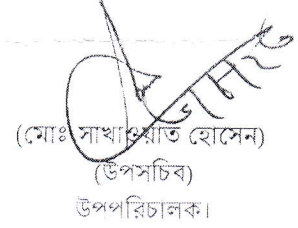 (মোঃ সাখাওয়াত হোসেন)
(উপসচিব)
উপপরিচালক।